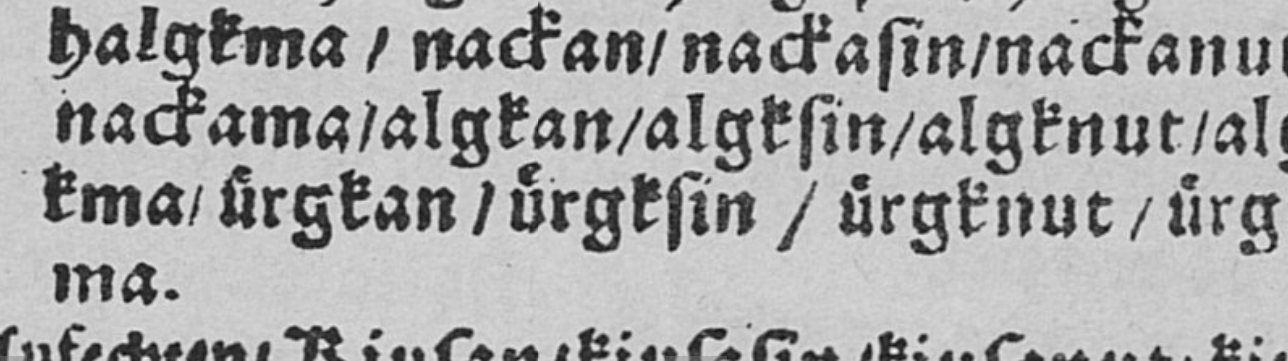 halgkma / nackan / nackaſin / nackanu
nackama / algkan / algkſin / algknut / alg
kma / uͤrgkan / uͤrgkſin / uͤrgknut / uͤrg
ma.